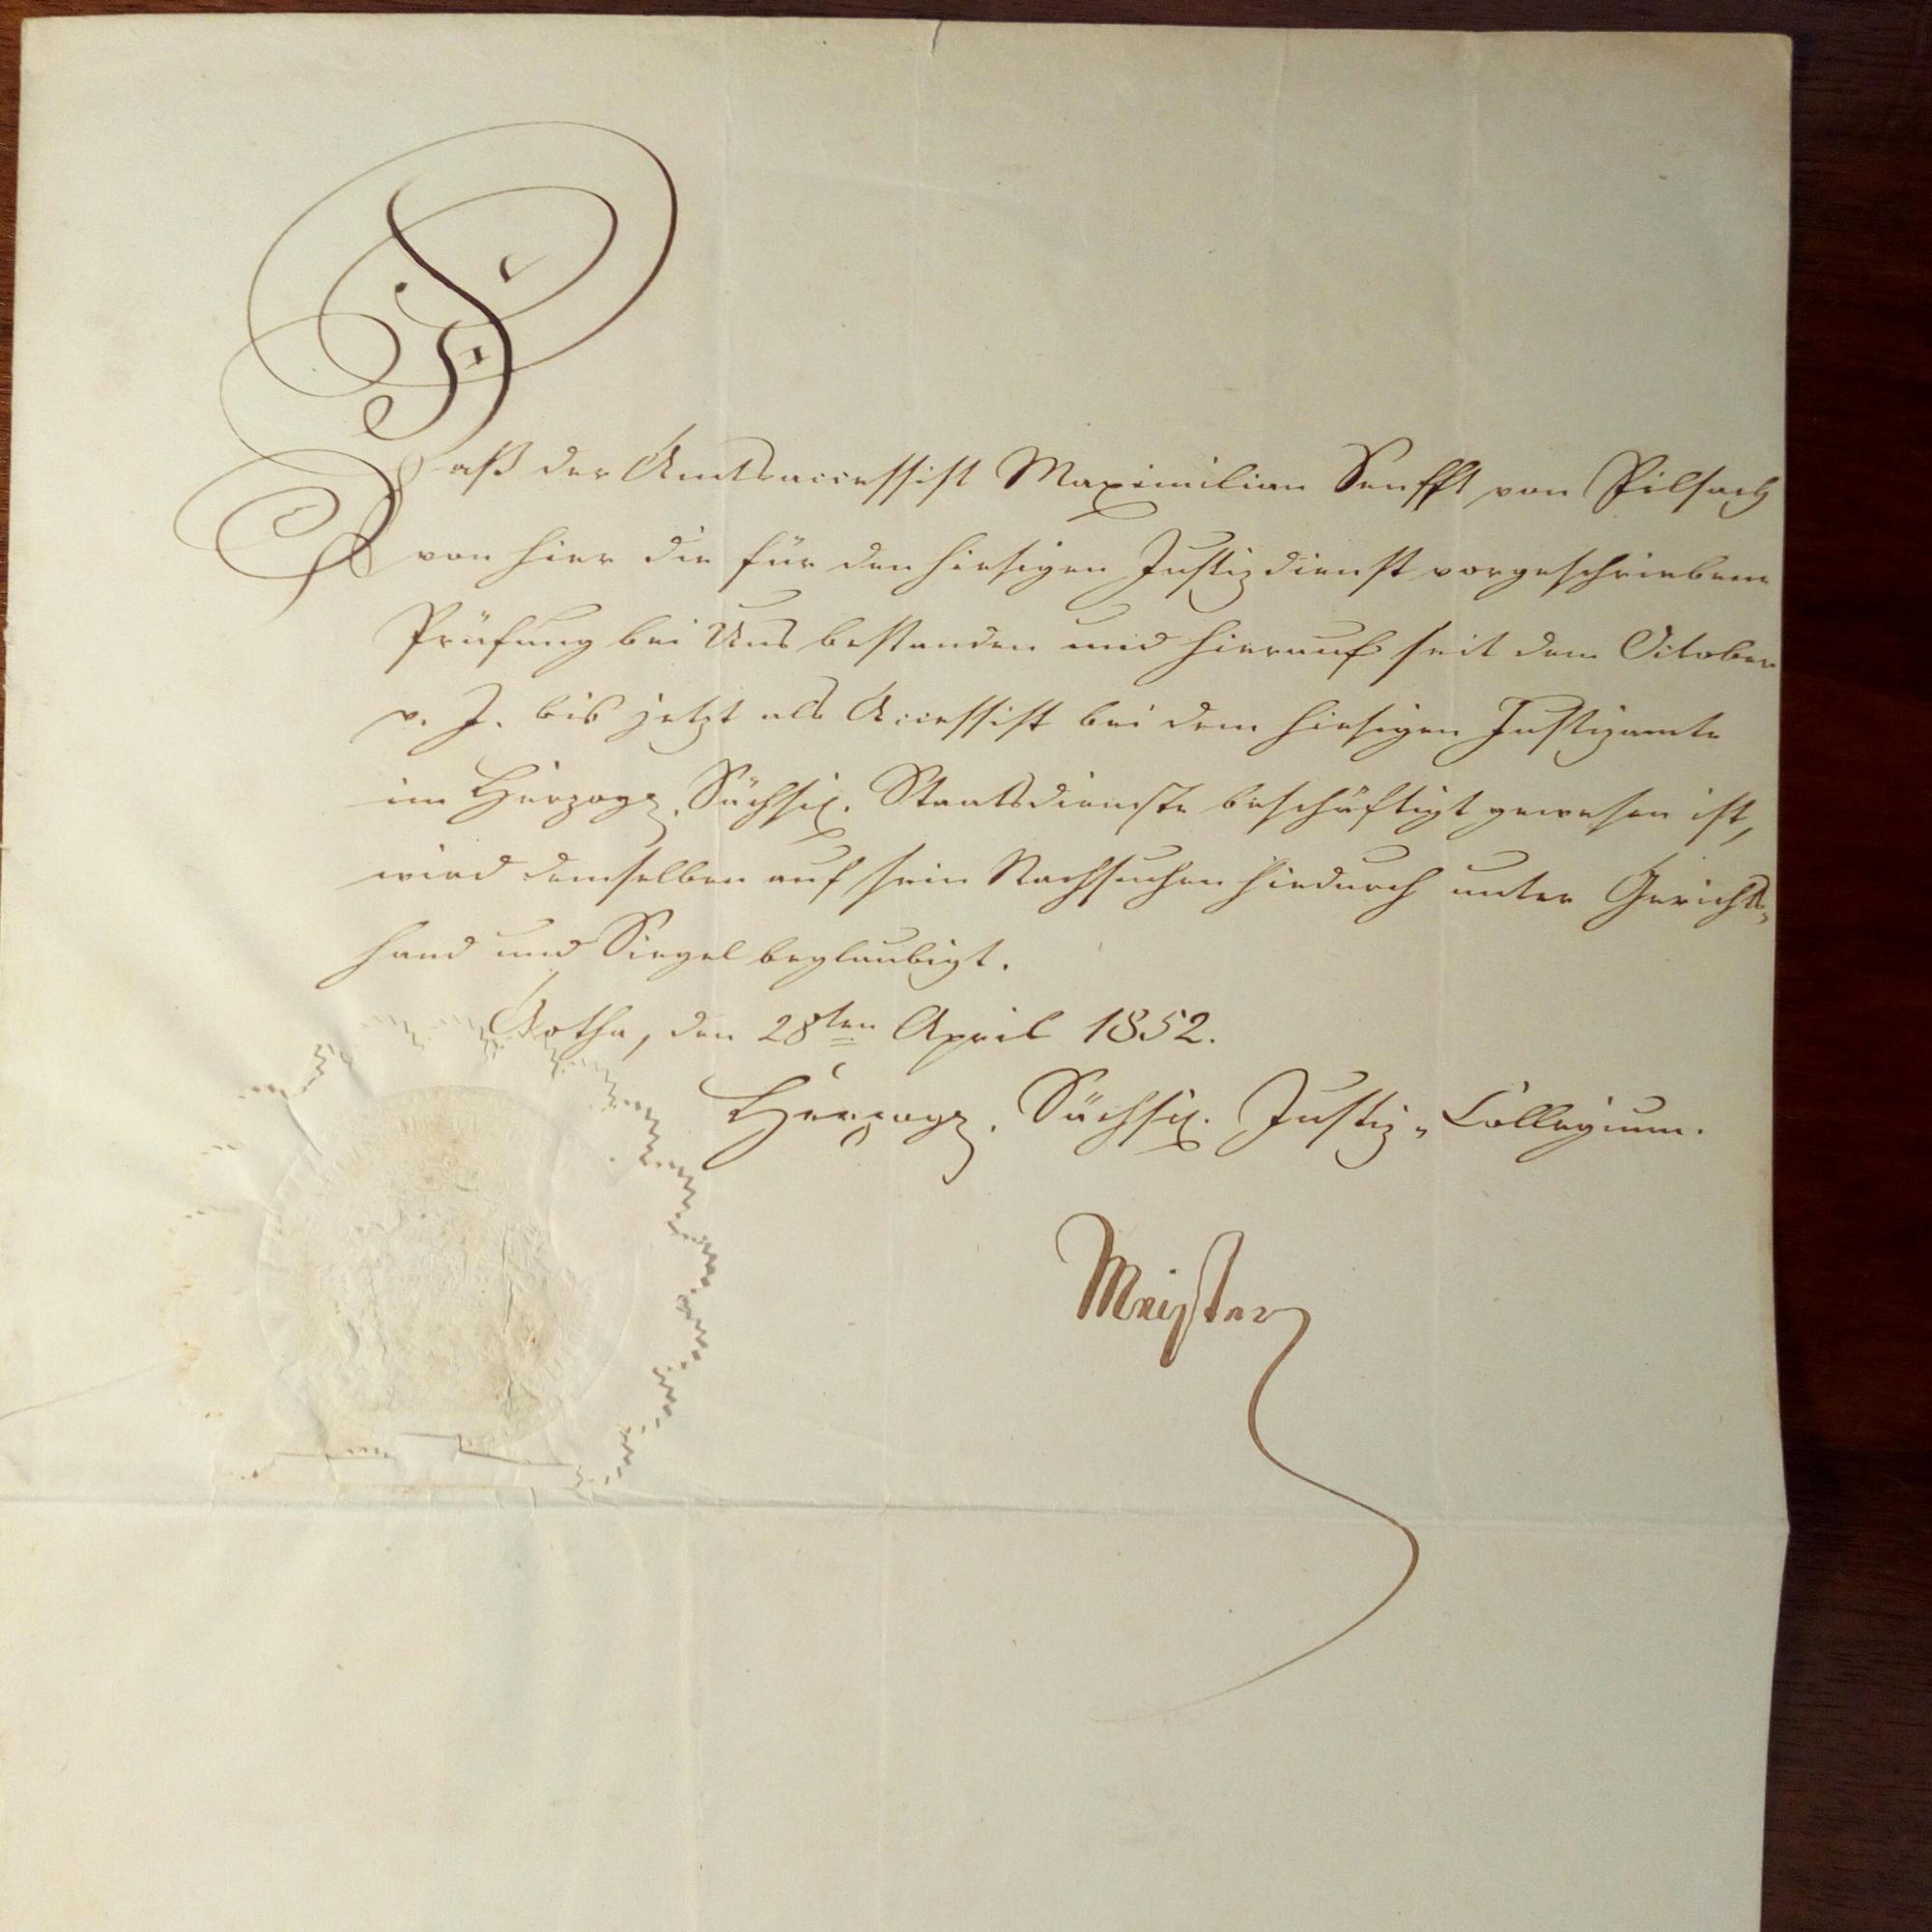 Daß der Amtsaccessist Maximilian Senfft von Pilsach
von hier die für den hiesigen Justizdienst vorgeschriebene
Prüfung bei Uns bestanden und hierauf seit dem October
v. J. bis jetzt als Accessist bei dem hiesigen Justizamte
im Herzogl. Sächsis. Staatsdienste beschäftigt gewesen ist,
wird demselben auf sein Nachsuchen hiedurch unter Gerichts-
hand und Siegel beglaubigt.
Gotha, den 28ten April 1852.
Herzogl. Sächsis. Justiz-Collegium.
Meister